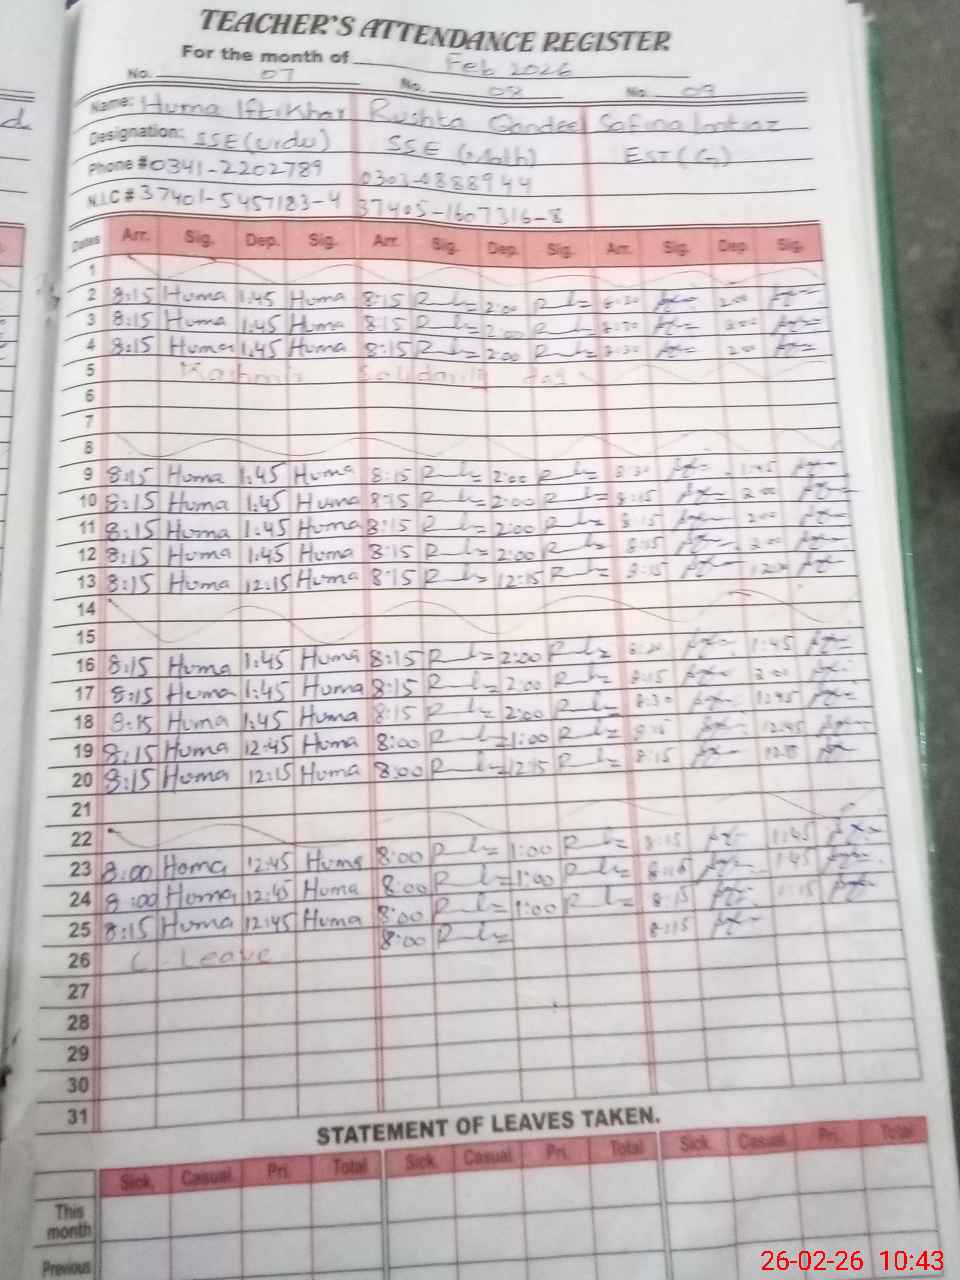 TEACHER'S ATTENDANCE REGISTER
For the month of Feb 2026
No. 07 No. 08 No. 09
Name: Huma Iftikhar Rushta Qandeel Safina Imtiaz
Designation: SSE (Urdu) SSE (Math) EST (G)
Phone # 0341-2202789 0303-0888944
N.I.C # 37401-5457183-4 37405-1607316-8
Dates Arr. Sig. Dep. Sig. Arr. Sig. Dep. Sig. Arr. Sig. Dep Sig.
1
2 8:15 Huma 1:45 Huma 8:15 2:00 8:30 2:00
3 8:15 Huma 1:45 Huma 8:15 2:00 8:30 2:00
4 8:15 Huma 1:45 Huma 8:15 2:00 8:30 2:00
5 Kashmir Solidarity day
6
7
8
9 8:15 Huma 1:45 Huma 8:15 2:00 8:30 1:45
10 8:15 Huma 1:45 Huma 8:15 2:00 8:15 2:00
11 8:15 Huma 1:45 Huma 8:15 2:00 8:15 2:00
12 8:15 Huma 1:45 Huma 8:15 2:00 8:15 2:00
13 8:15 Huma 12:15 Huma 8:15 12:15 8:15
14
15
16 8:15 Huma 1:45 Huma 8:15 2:00 1:45
17 8:15 Huma 1:45 Huma 8:15 2:00 8:15 2:00
18 8:15 Huma 1:45 Huma 8:15 2:00 8:30 1:45
19 8:15 Huma 12:45 Huma 8:00 1:00 8:15 12:45
20 8:15 Huma 12:15 Huma 8:00 12:15 8:15
21
22
23 8:00 Homa 12:45 Huma 8:00 1:00 8:15 1:45
24 8:00 Huma 12:45 Huma 8:00 1:00 8:15 1:45
25 8:15 Huma 12:45 Huma 8:00 1:00 8:15
26 C Leave 8:00 8:15
27
28
29
30
31
STATEMENT OF LEAVES TAKEN.
Sick. Casual. Pri. Total Sick. Casual. Pri. Total Sick. Casual. Pri. Total
This month
Previous
26-02-26 10:43